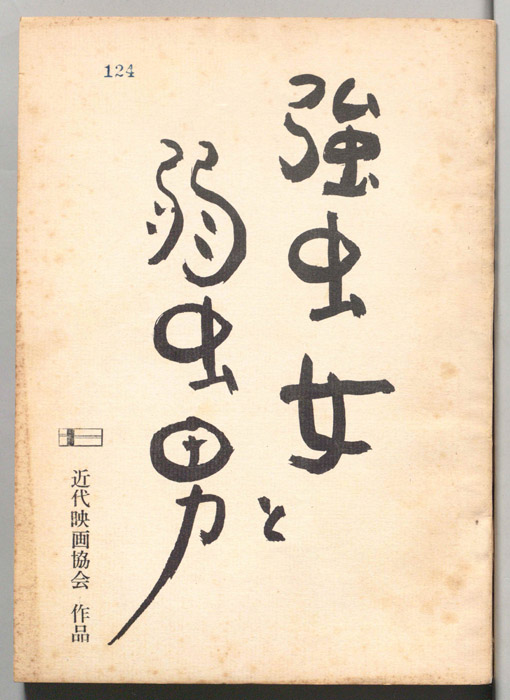 124
強虫女と
弱虫男
近代映画協会 作品